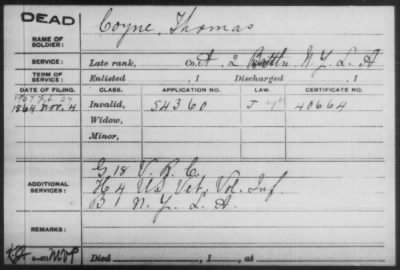 DEAD
Coyne, Thomas
NAME OF SOLDIER:
SERVICE: Late rank, Co. A. 2 Battn. N. Y. L. A
TERM OF SERVICE: Enlisted , 1 Discharged , 1
DATE OF FILING. CLASS. APPLICATION NO. LAW. CERTIFICATE NO.
1864 Nov. 4 Invalid, 54360 J 40664
Widow,
Minor,
ADDITIONAL SERVICES:
G 18 V. R. C.
H 4 US Vet. Vol. Inf.
B 1 N. Y. L. A.
REMARKS:
Died , 1 , at